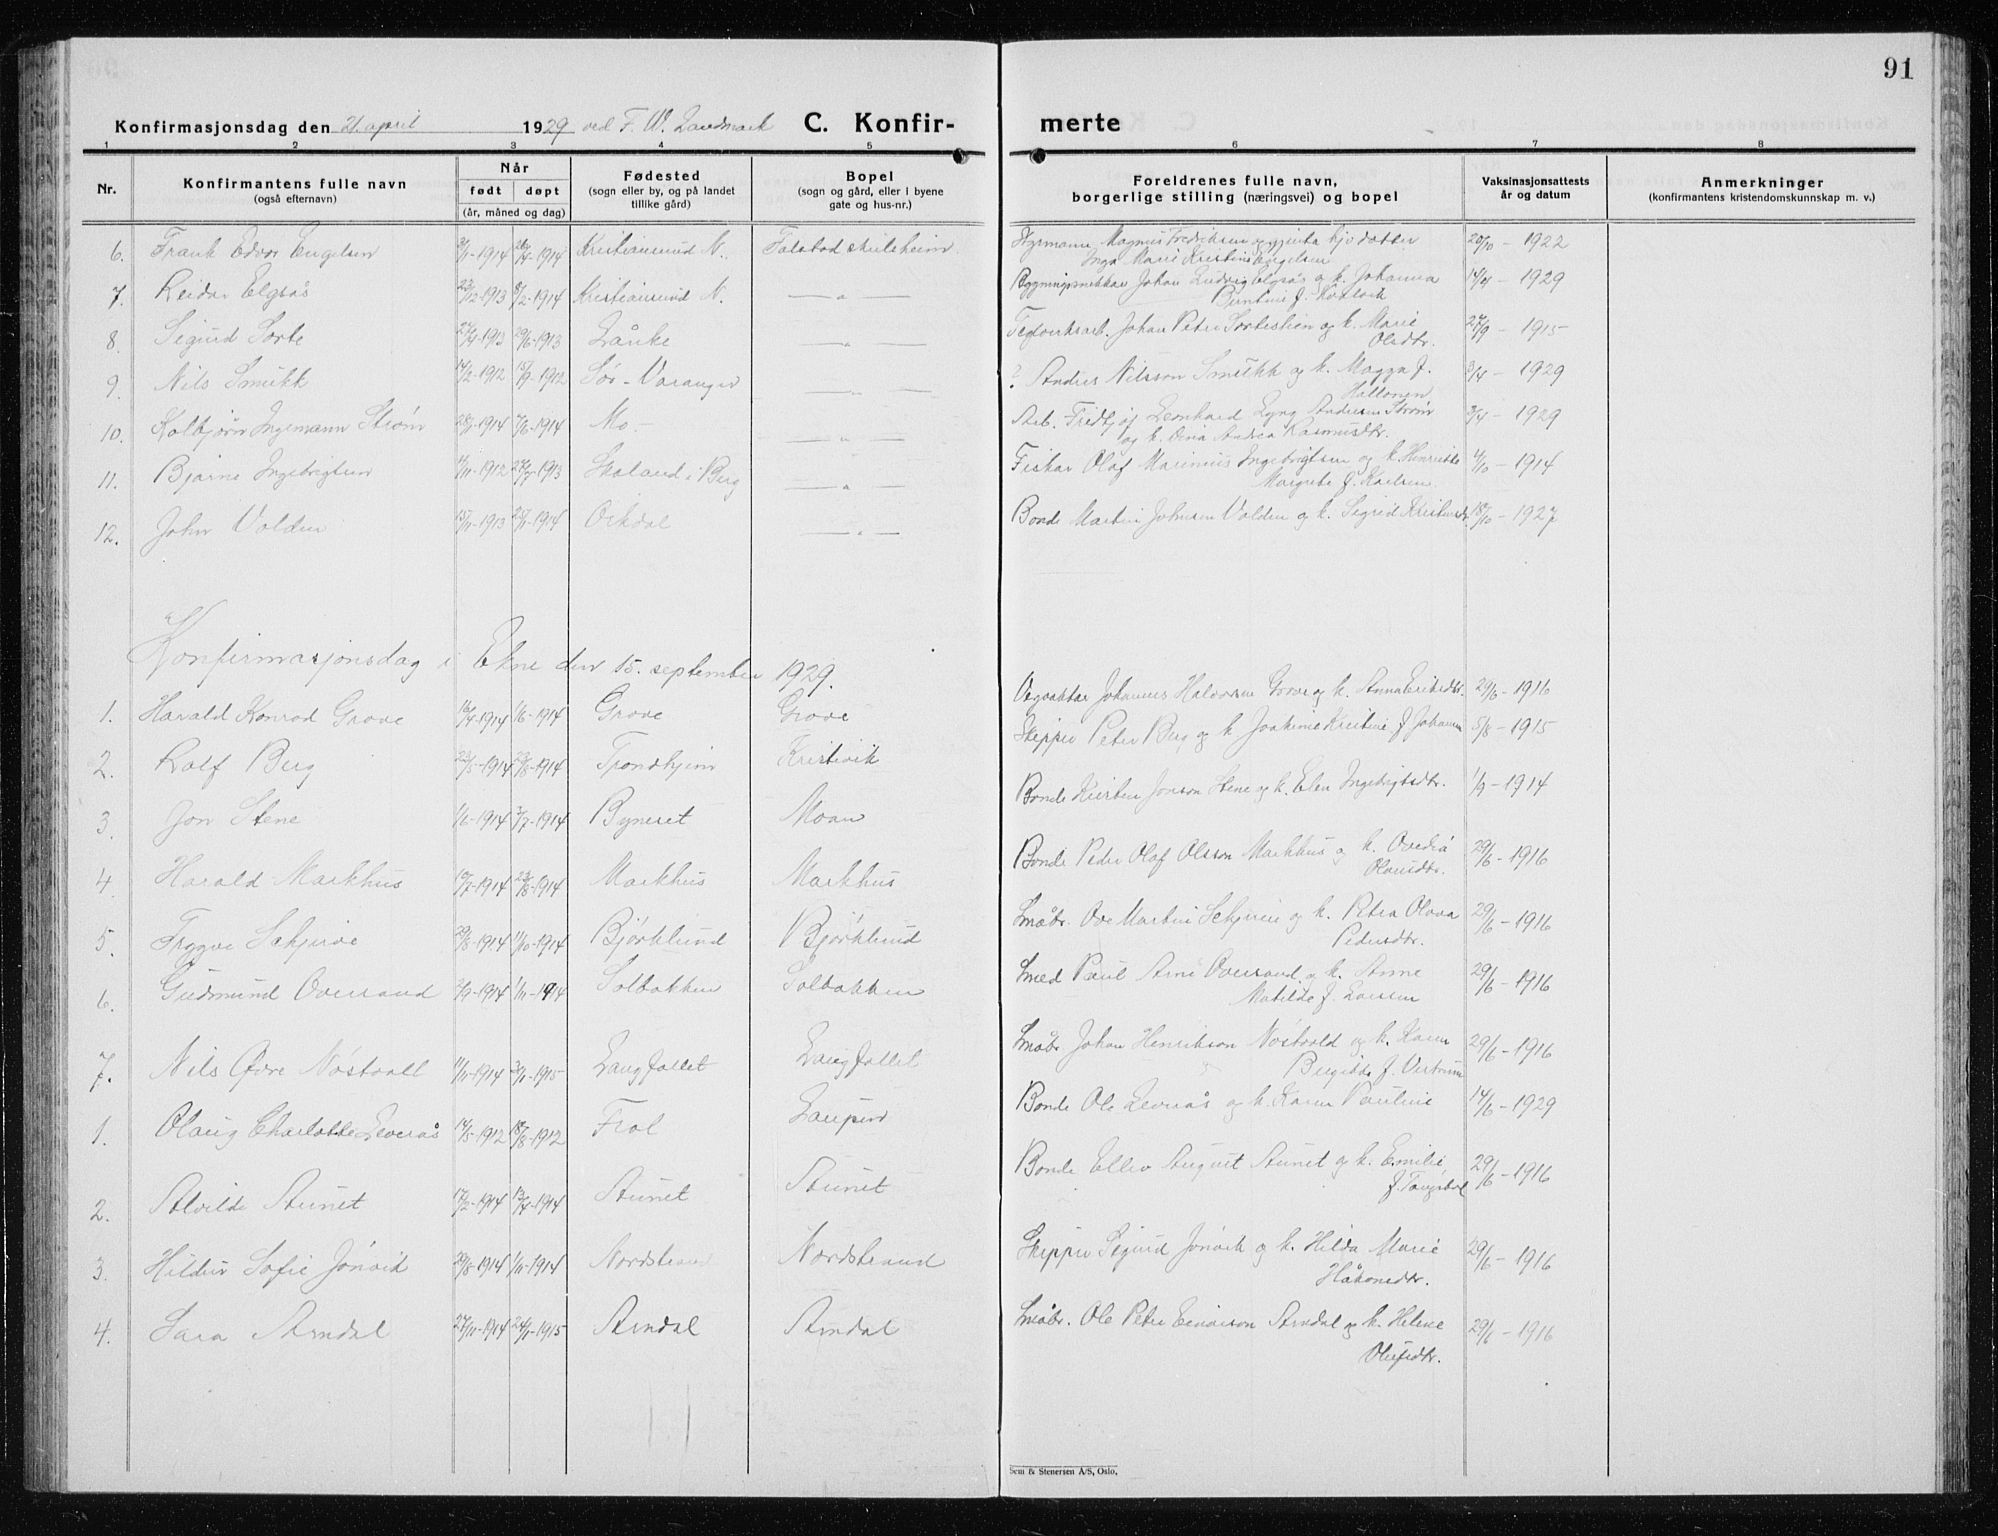 91
Konfirmasjonsdag den 21. april 1929 ved F. W. Landmark C. Konfir- merte
1 2 3 4 5 6 7 8
Nr. Konfirmantens fulle navn (også efternavn) Når født døpt (år, måned og dag) Fødested (sogn eller by, og på landet tillike gård) Bopel (sogn og gård, eller i byene gate og hus-nr.) Foreldrenes fulle navn, borgerlige stilling (næringsvei) og bopel Vaksinasjonsattests år og datum Anmerkninger (konfirmantens kristendomskunnskap m. v.)
6. Frank Edvor Engelsen 1914 1914 Kristiansund N. Falstad skoleheim Magnus Fredriksen og 20/10 - 1922
Inga Marie Kristine Engelsen
7. Reidar Elgsås 23/12-1913 8/2-1914 Kristiansund N. — " — Bygningssnekker Johan Ludvig Elgsås og k. Johanna 14/4 - 1929
8. Sigurd Sorte 1913 29/6-1913 Lånke — " — Teglverksarb. Johan Peter og k. Marie 27/9 - 1915
Olsdtr.
9. Nils Smukk 14/2-1912 15/9-1912 Sør-Varanger — " — ? Andres Nilsson Smukk og k. Magga f. 3/4 - 1929
Hallonen
10. Kolbjørn Ingemann Strøm 28/1-1914 7/6-1914 Mo. — " — Arb. Fredtjof Leonhard Lyng Andersen Strøm 3/4 - 1929
og k. Dina Andrea Rasmusdtr.
11. Bjarne Ingebrigtsen 11/11-1912 1913 Skaland i Berg — " — Fisker Olaf Marinius Ingebrigtsen og k. Henriette 4/10 - 1914
Margrete f. Karlsen
12. John Volden 15/11-1913 25/1-1914 Orkdal — " — Bonde Martin Johnsen Volden og k. Sigrid Kristensdtr. 18/10 - 1927
Konfirmasjonsdag i Ekne den 15. september 1929.
1. Harald Konrad Grove 16/4-1914 1/6-1914 Grove Grove Vegvokter Johannes Halvorsen Grove og k. Anna Eriksdtr. 29/6 - 1916
2. Rolf Berg 23/5-1914 23/8-1914 Trondhjem Kristivik Skipper Peter Berg og k. Joakime Kristine f. Johansen 5/8 - 1915
3. Jon Stene 1/6-1914 3/7-1914 Byneset Moan Bonde Kirsten Jonson Stene og k. Elen Ingebrigtsdtr. 1/9 - 1914
4. Harald Markhus 19/7-1914 23/8-1914 Markhus Markhus Bonde Peder Olaf Olsson Markhus og k. Ovedia 29/6 - 1916
Olausdtr.
5. Trygve Schjerve 29/8-1914 11/10-1914 Bjørklund Bjørklund Småbr. Ove Martin Schjerve og k. Petra Olava 29/6 - 1916
Pedersdtr.
6. Gudmund Oversand 2/9-1914 1/11-1914 Solbakken Solbakken Smed Paul Arne Oversand og k. Anne 29/6 - 1916
Matilde f. Larsen
7. Nils Øvre Nøstvoll 1/11-1914 3/1-1915 Langfallet Langfallet Småbr. Johan Henrikson Nøstvold og k. Karen 29/6 - 1916
Birgitte f. Vestrum
1. Olaug Charlotte Leverås 14/5-1912 18/8-1912 Frol Bonde Ole Leverås og k. Karen Pauline 14/6 - 1929
2. Alvilde Aunet 17/2-1914 13/4-1914 Aunet Aunet Bonde Ellev August Aunet og k. Emilie 29/6 - 1916
3. Hildur Sofie Jönvik 23/8-1914 1/11-1914 Nordstrand Nordstrand Skipper Sigurd Jönvik og k. Hilda Marie 29/6 - 1916
Håkonsdtr.
4. Sara Arndal 27/11-1914 24/1-1915 Arndal Arndal Småbr. Ole Peter Einarson Arndal og k. Helene 29/6 - 1916
Olufsdtr.
Sem & Stenersen A/S, Oslo.